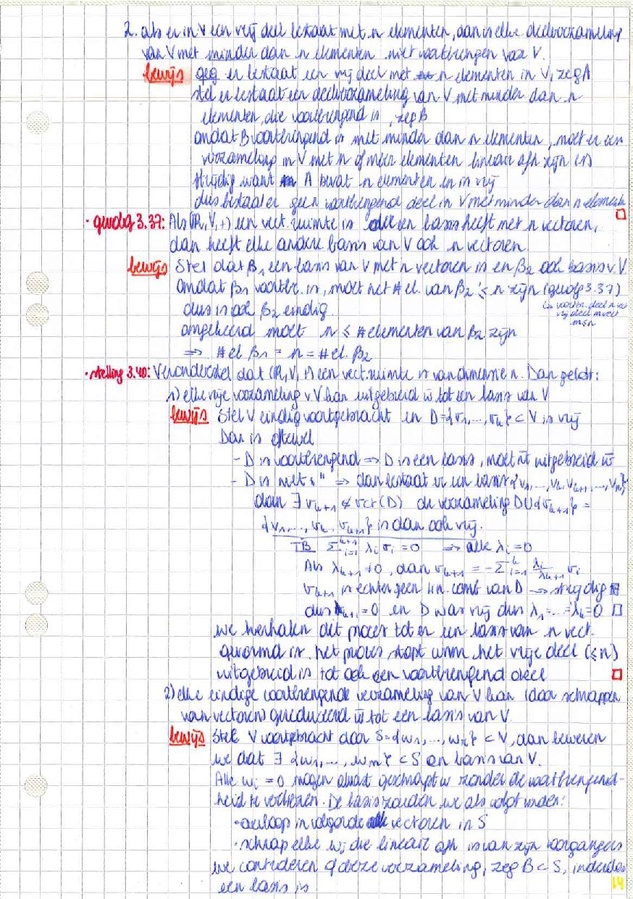 2. als er in V een vrij deel bestaat met n elementen, dan is elke deelverzameling
van V met minder dan n elementen niet voortbrengend voor V.
bewijs geg er bestaat een vrij deel met n elementen in V, zeg A
stel er bestaat een deelverzameling van V met minder dan n
elementen, die voortbrengend is, zeg B
omdat B voortbrengend is met minder dan n elementen, moet er een
verzameling in V met n of meer elementen lineair afh zijn (1)
strijdig want A bevat n elementen en is vrij
dus bestaat er geen voortbrengend deel in V met minder dan n element
• gevolg 3.37: Als (ℝ,V,+) een vect. ruimte is die een basis heeft met n vectoren,
dan heeft elke andere basis van V ook n vectoren.
bewijs Stel dat β₁ een basis van V met n vectoren is en β₂ ook basis v. V.
Omdat β₁ voortbr. is, moet het # el. van β₂ ≤ n zijn (gevolg 3.37)
dus is ook β₂ eindig.
omgekeerd moet n ≤ # elementen van β₂ zijn
⇒ # el β₁ = n = # el. β₂
• stelling 3.40: Veronderstel dat (ℝ,V,+) een vect. ruimte is van dimensie n. Dan geldt:
1) elke vrije verzameling v. V kan uitgebreid w tot een basis van V
bewijs Stel V eindig voortgebracht en D = {v₁,...,vₖ} ⊂ V is vrij
Dan is ofwel
- D is voortbrengend ⇒ D is een basis, moet nt uitgebreid w
- D is niet " ⇒ dan bestaat er een basis {v₁,...,vₖ,vₖ₊₁,...,vₙ}
dan ∃ vₖ₊₁ ∉ vct(D) de verzameling D ∪ {vₖ₊₁} =
{v₁,...,vₖ,vₖ₊₁} is dan ook vrij.
TB Σᵢ₌₁ᵏ⁺¹ λᵢvᵢ = 0 ⇒ alle λᵢ = 0
Als λₖ₊₁ ≠ 0, dan vₖ₊₁ = -Σᵢ₌₁ᵏ λᵢ/λₖ₊₁ vᵢ
vₖ₊₁ is echter geen lin. comb van D → strijdig
dus λₖ₊₁ = 0 en D was vrij dus λ₁ = ... = λₖ = 0 □
we herhalen dit proces tot er een basis van n vect.
gevormd is. het proces stopt wnm het vrije deel (≤n)
uitgebreid is tot ook een voortbrengend deel
2) elke eindige voortbrengende verzameling van V kan (door schrappen
van vectoren) gereduceerd w tot een basis van V.
bewijs Stel V voortgebracht door S = {w₁,...,wₘ} ⊂ V, dan beweren
we dat ∃ {w₁,...,wₙ} ⊂ S een basis van V.
Alle wᵢ = 0 mogen alvast geschrapt w zonder de voortbrengend-
heid te verliezen. De basis zouden we als volgt vinden:
• overloop in volgorde alle vectoren in S
• schrap elke wⱼ die lineair afh is van zijn voorgangers
we controleren of deze verzameling, zeg B ⊂ S, inderdaad
een basis is
14